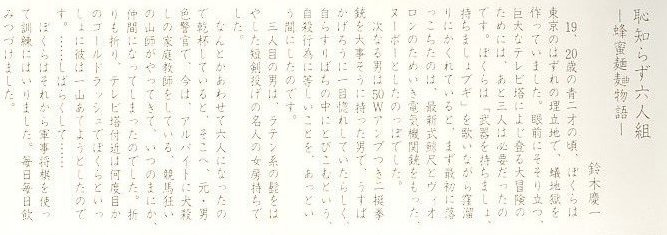 恥知らず六人組
―蜂蜜麺麭物語―
鈴木慶一
19、20歳の青二才の頃、ぼくらは
東京のはずれの埋立地で、蟻地獄を
作っていました。眼前にそそり立つ、
巨大なテレビ塔によじ登る大冒険の
ためには、あと三人は必要だったの
です。ぼくらは「武器を持ちましょ、
持ちましょブギ」を歌いながら窪溜
りにかくれていると、まず最初に落
っこちたのは、最新式鯨尺とヴィオ
ロンのためいき電気機関銃をもった、
ヌーボーとしたのっぽでした。
次なる男は50Wアンプつき二挺拳
銃を大事そうに持った男で、うすば
かげろうに一目惚れしていたらしく、
自らすりばちの中にとびこむという、
自殺行為に等しいことを、あっとい
う間にしたのです。
三人目の男は、ラテン系の髭をは
やした短剣投げの名人の女房持ちで
した。
なんとかあわせて六人になったの
で乾杯していると、そこへ、元・男
色警官で、今は、アルバイトに犬殺
しの家庭教師をしている、競馬狂い
の山師がやってきて、いつのまにか、
仲間になってしまったのでした。折
りも折り、テレビ塔付近は何度目か
のゴールドラッシュでぼくらといっ
しょに彼は一山あてようとしたので
す。……しばらくして……
ぼくらはそれから軍事将棋を使っ
て訓練にはいりました。毎日毎日飲
みつづけました。